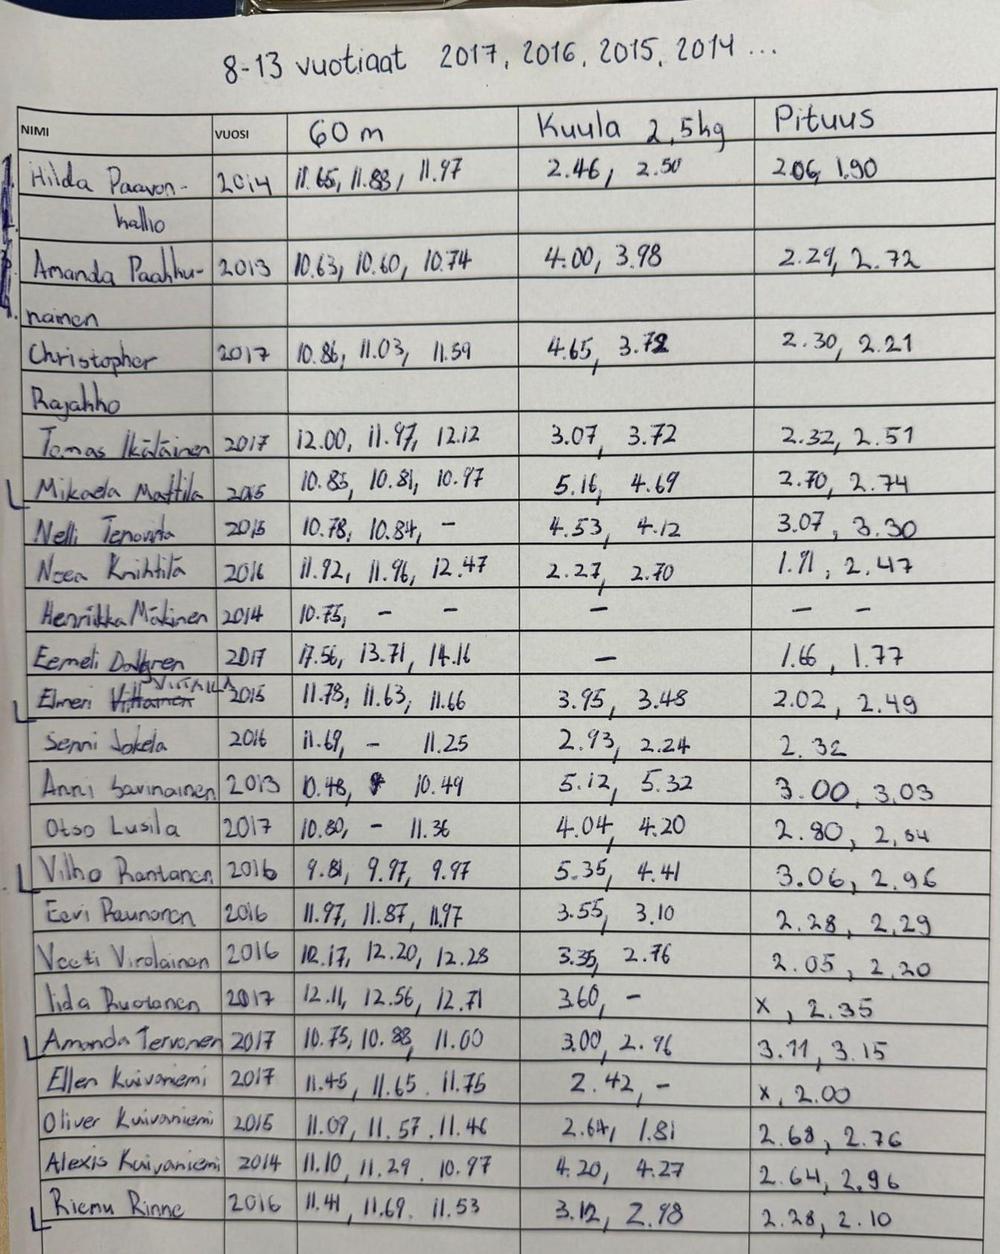 8-13 vuotiaat 2017, 2016, 2015, 2014 ...
NIMI VUOSI 60 m Kuula 2,5kg Pituus
Hilda Paavon- 2014 11.65, 11.88, 11.97 2.46, 2.50 2.06, 1.90
kallio
Amanda Paahku- 2013 10.63, 10.60, 10.74 4.00, 3.98 2.29, 2.72
nainen
Christopher 2017 10.86, 11.03, 11.59 4.65, 3.72 2.30, 2.21
Rajakko
Tomas Ikäläinen 2017 12.00, 11.97, 12.12 3.07, 3.72 2.32, 2.51
Mikaela Mattila 2015 10.85, 10.81, 10.97 5.16, 4.69 2.70, 2.74
Nelli Tenovirta 2015 10.78, 10.84, - 4.53, 4.12 3.07, 3.30
Noea Knihtilä 2016 11.92, 11.96, 12.47 2.27, 2.70 1.91, 2.47
Henriikka Mäkinen 2014 10.75, - - - - -
Eemeli Dahlgren 2017 17.56, 13.71, 14.16 - 1.66, 1.77
Elmeri Virtala 2015 11.78, 11.63, 11.66 3.95, 3.48 2.02, 2.49
Senni Jokela 2016 11.69, - 11.25 2.93, 2.24 2.32
Anni Savinainen 2013 10.48, 10.49 5.12, 5.32 3.00, 3.03
Otso Lusila 2017 10.80, - 11.36 4.04, 4.20 2.80, 2,64
Vilho Rantanen 2016 9.81, 9.97, 9.97 5.35, 4.41 3.06, 2.96
Eevi Raunoron 2016 11.97, 11.87, 11.97 3.55, 3.10 2.28, 2,29
Veeti Virolainen 2016 12.17, 12.20, 12.28 3.35, 2.76 2.05, 2,20
Iida Ruotanen 2017 12.11, 12.56, 12.71 3.60, - x, 2.35
Amanda Tervonen 2017 10.75, 10.88, 11.00 3.00, 2.96 3.11, 3.15
Ellen Kuivaniemi 2017 11.45, 11.65. 11.75 2.42, - x, 2.00
Oliver Kuivaniemi 2015 11.09, 11.57. 11.46 2.64, 1.81 2.68, 2.76
Alexis Kuivaniemi 2014 11.10, 11.29. 10.97 4.20, 4.27 2.64, 2,96
Riemu Rinne 2016 11.41, 11.69. 11.53 3.12, 2.98 2.28, 2.10